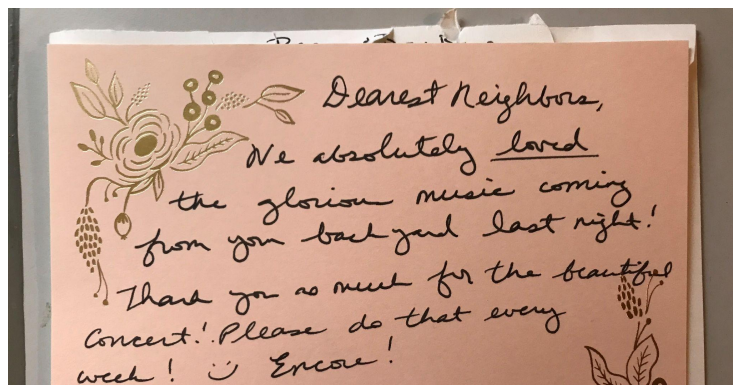 Dearest Neighbors,
We absolutely loved
the glorious music coming
from your back yard last night!
Thank you so much for the beautiful
concert! Please do that every
week! :) Encore!